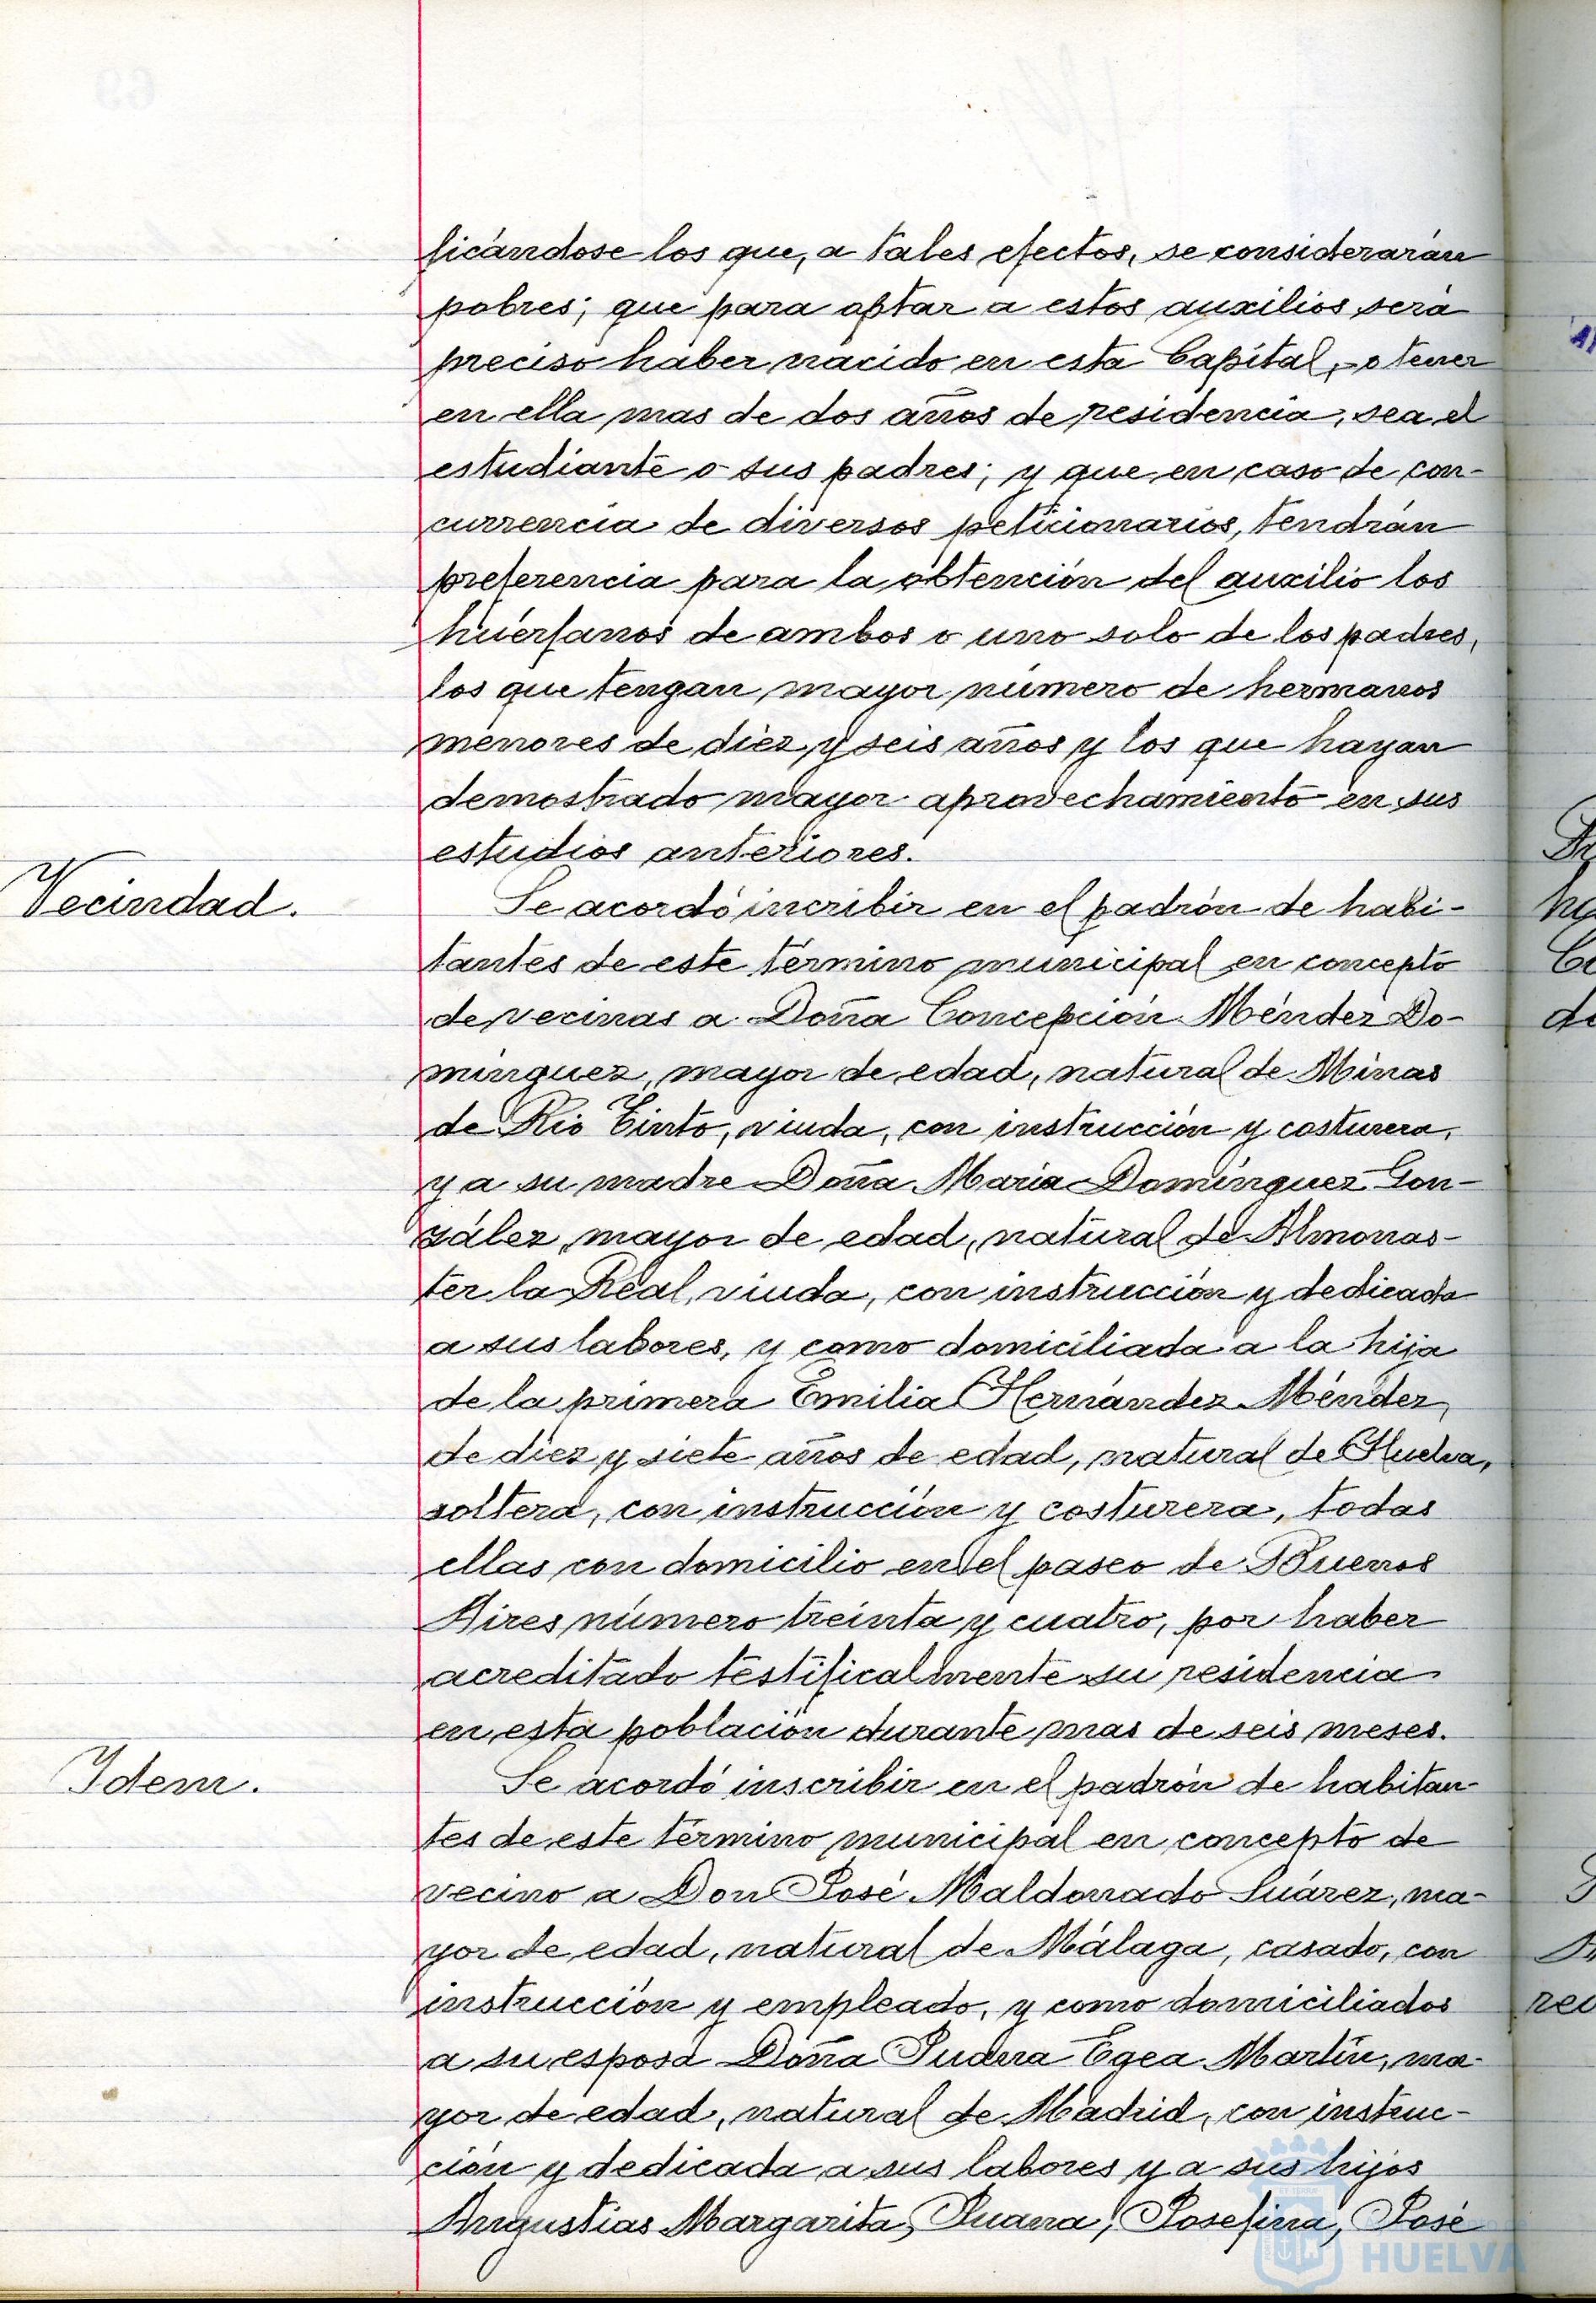 ficándose los que, a tales efectos, se considerarán
pobres; que para optar a estos auxilios será
preciso haber nacido en esta Capital, o tener
en ella mas de dos años de residencia, sea el
estudiante o sus padres; y que en caso de con-
currencia de diversos peticionarios, tendrán
preferencia para la obtención del auxilio los
huérfanos de ambos o uno solo de los padres,
los que tengan mayor número de hermanos
menores de diez y seis años y los que hayan
demostrado mayor aprovechamiento en sus
estudios anteriores.
Vecindad.
Se acordó incribir en el padrón de habi-
tantes de este término municipal en concepto
de vecinas a Doña Concepción Méndez Do-
minguez, mayor de edad, natural de Minas
de Rio Tinto, viuda, con instrucción y costurera,
y a su madre Doña Maria Domínguez Gon-
zález, mayor de edad, natural de Almonas-
ter la Real, viuda, con instrucción y dedicada
a sus labores, y como domiciliada a la hija
de la primera Emilia Hernández Méndez,
de diez y siete años de edad, natural de Huelva,
soltera, con instrucción y costurera, todas
ellas con domicilio en el paseo de Buenos
Aires número treinta y cuatro, por haber
acreditado testificalmente su residencia
en esta población durante mas de seis meses.
Idem.
Se acordó inscribir en el padrón de habitan-
tes de este término municipal en concepto de
vecino a Don José Maldonado Suárez, ma-
yor de edad, natural de Málaga, casado, con
instrucción y empleado, y como domiciliados
a su esposa Doña Juana Egea Martín, ma-
yor de edad, natural de Madrid, con instruc-
ción y dedicada a sus labores y a sus hijos
Angustias Margarita, Juana, Josefina, José
HUELVA